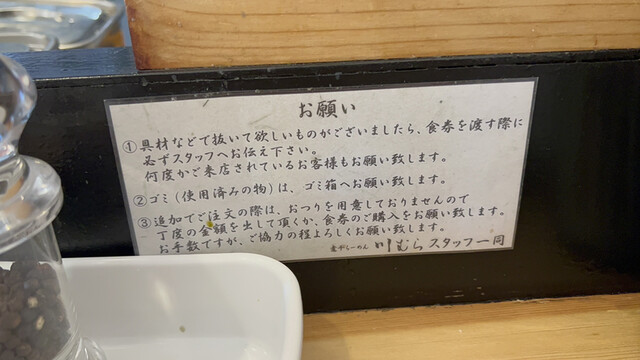 お願い
①具材などで抜いて欲しいものがございましたら、食券を渡す際に
必ずスタッフへお伝え下さい。
何度かご来店されているお客様もお願い致します。
②ゴミ(使用済みの物)は、ゴミ箱へお願い致します。
③追加でご注文の際は、おつりを用意しておりませんので
丁度の金額を出して頂くか、食券のご購入をお願い致します。
お手数ですが、ご協力の程よろしくお願い致します。
らーめん 川むら スタッフ一同